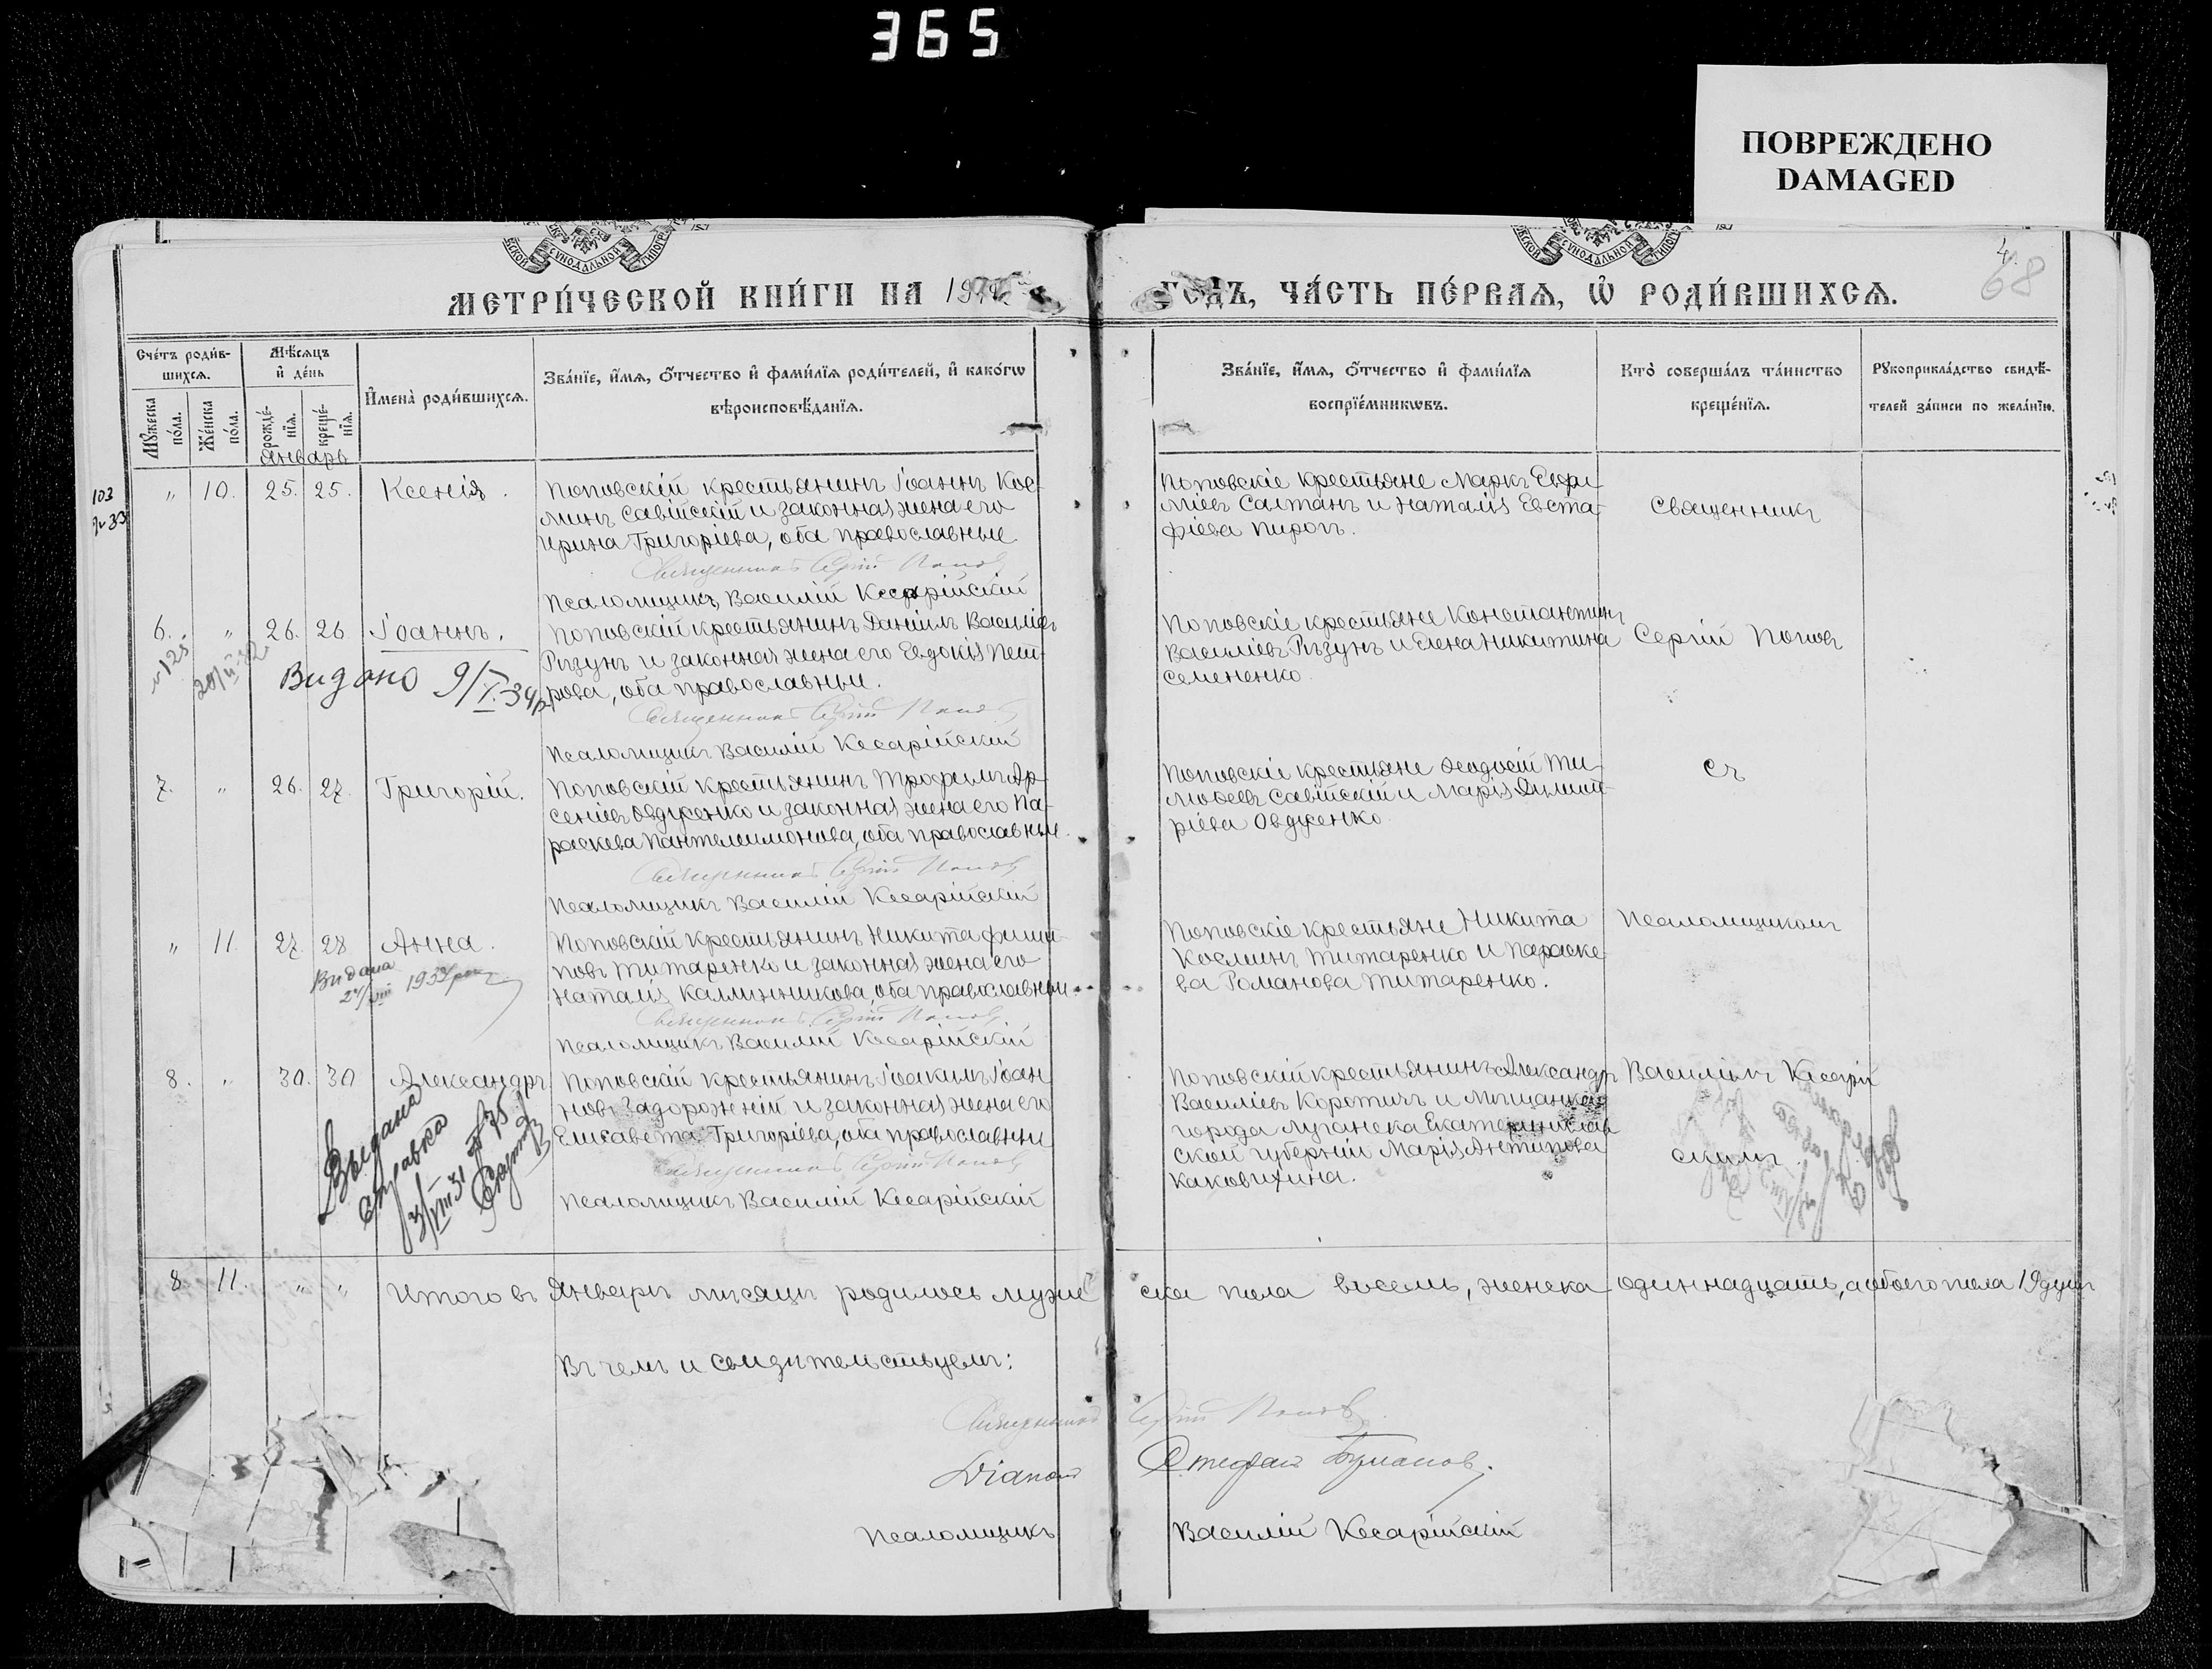 365
ПОВРЕЖДЕНО
DAMAGED
СѴНОДАЛЬНОЙ
СѴНОДАЛЬНОЙ
68
МЕТРИ́ЧЕСКОЙ КНИ́ГИ НА 19
ГОДЪ, ЧА́СТЬ ПЕ́РВАЯ, Ѡ҆ РОДИ́ВШИХСЯ.
Сче́тъ роди́в-
шихся.
Мѣ́сяцъ
и҆ де́нь
Мꙋ́жеска
по́ла.
Же́нска
по́ла.
рожде́-
нїя.
креще́-
нїя.
И҆мена̀ роди́вшихся.
Зва́нїе, и҆́мя, ѻ҆́тчество и҆ фами́лїя роди́телей, и҆ како́гѡ
вѣроисповѣ́данїя.
Зва́нїе, и҆́мя, ѻ҆́тчество и҆ фами́лїя
воспрїе́мникѡвъ.
Кто̀ соверша́лъ та́инство
креще́нїя.
Рꙋкоприкла́дство свидѣ́-
телей за́писи по жела́нїю.
Январь
103
" 10. 25. 25. Ксенія.
Поповскій крестьянинъ Іоаннъ Кос-
минъ Савітскій и законная жена его
Ирина Григоріева, оба православные
Священникъ Сергій Поповъ
Псаломщикъ Василій Кесарійскій
Поповскіе крестьяне Маркъ Евфи-
міевъ Салтанъ и Наталія Евста-
фіева Пирогъ.
Священникъ
6. " 26. 26 Іоаннъ.
Видано 9/I-34р
Поповскій крестьянинъ Даніилъ Василіевъ
Рѣзунъ и законная жена его Евдокія Пет-
рова, оба православные.
Священникъ Сергій Поповъ
Псаломщикъ Василій Кесарійскій
Поповскіе крестьяне Константинъ
Василіевъ Рѣзунъ и Елена Никитина
Семененко
Сергій Поповъ
7. " 26. 27. Григорій.
Поповскій крестьянинъ Трофимъ Ар-
сеніевъ Овдѣенко и законная жена его Па-
раскева Пантелеимонова, оба православные.
Священникъ Сергій Поповъ
Псаломщикъ Василій Кесарійскій
Поповскіе крестьяне Ѳеодосій Ти-
моѳеевъ Савітскій и Марія Димит-
ріева Овдѣенко
Съ
" 11. 27. 28 Анна.
Видана
Поповскій крестьянинъ Никита Филип-
повъ Титаренко и законная жена его
Наталія Каллинникова, оба православные.
Священникъ Сергій Поповъ
Псаломщикъ Василій Кесарійскій
Поповскіе крестьяне Никита
Косминъ Титаренко и Параске-
ва Романова Титаренко.
Псаломщикомъ
8. " 30. 30 Александръ
Выдана
справка
Поповскій крестьянинъ Іоакимъ Іоан-
новъ Задорожній и законная жена его
Елисавета Григоріева, оба православные
Священникъ Сергій Поповъ
Псаломщикъ Василій Кесарійскій
Поповскій крестьянинъ Александръ
Василіевъ Коротичъ и Мѣщанка
города Луганска Екатеринослав
ской губерніи Марія Антипова
Каковихина.
Василіемъ Кесарій
скимъ.
8. 11. " " Итого въ Январѣ мѣсяцѣ родилось мужес ска пола восемь, женска одиннадцать, а обоего пола 19 душъ
Въ чемъ и свидѣтельствуемъ:
Священникъ Сергій Поповъ
Діаконъ Стефанъ
Псаломщикъ Василій Кесарійскій